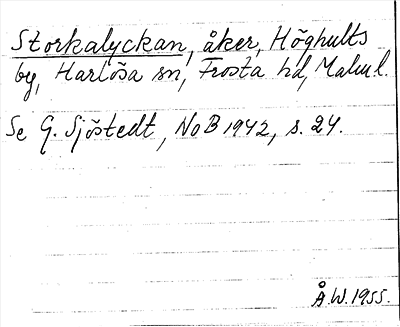 Storkalyckan, åker, Höghults
by, Harlösa sn, Frosta hd, Malm l.
Se G. Sjöstedt, NoB 1942, s. 24.
Å.W. 1955.